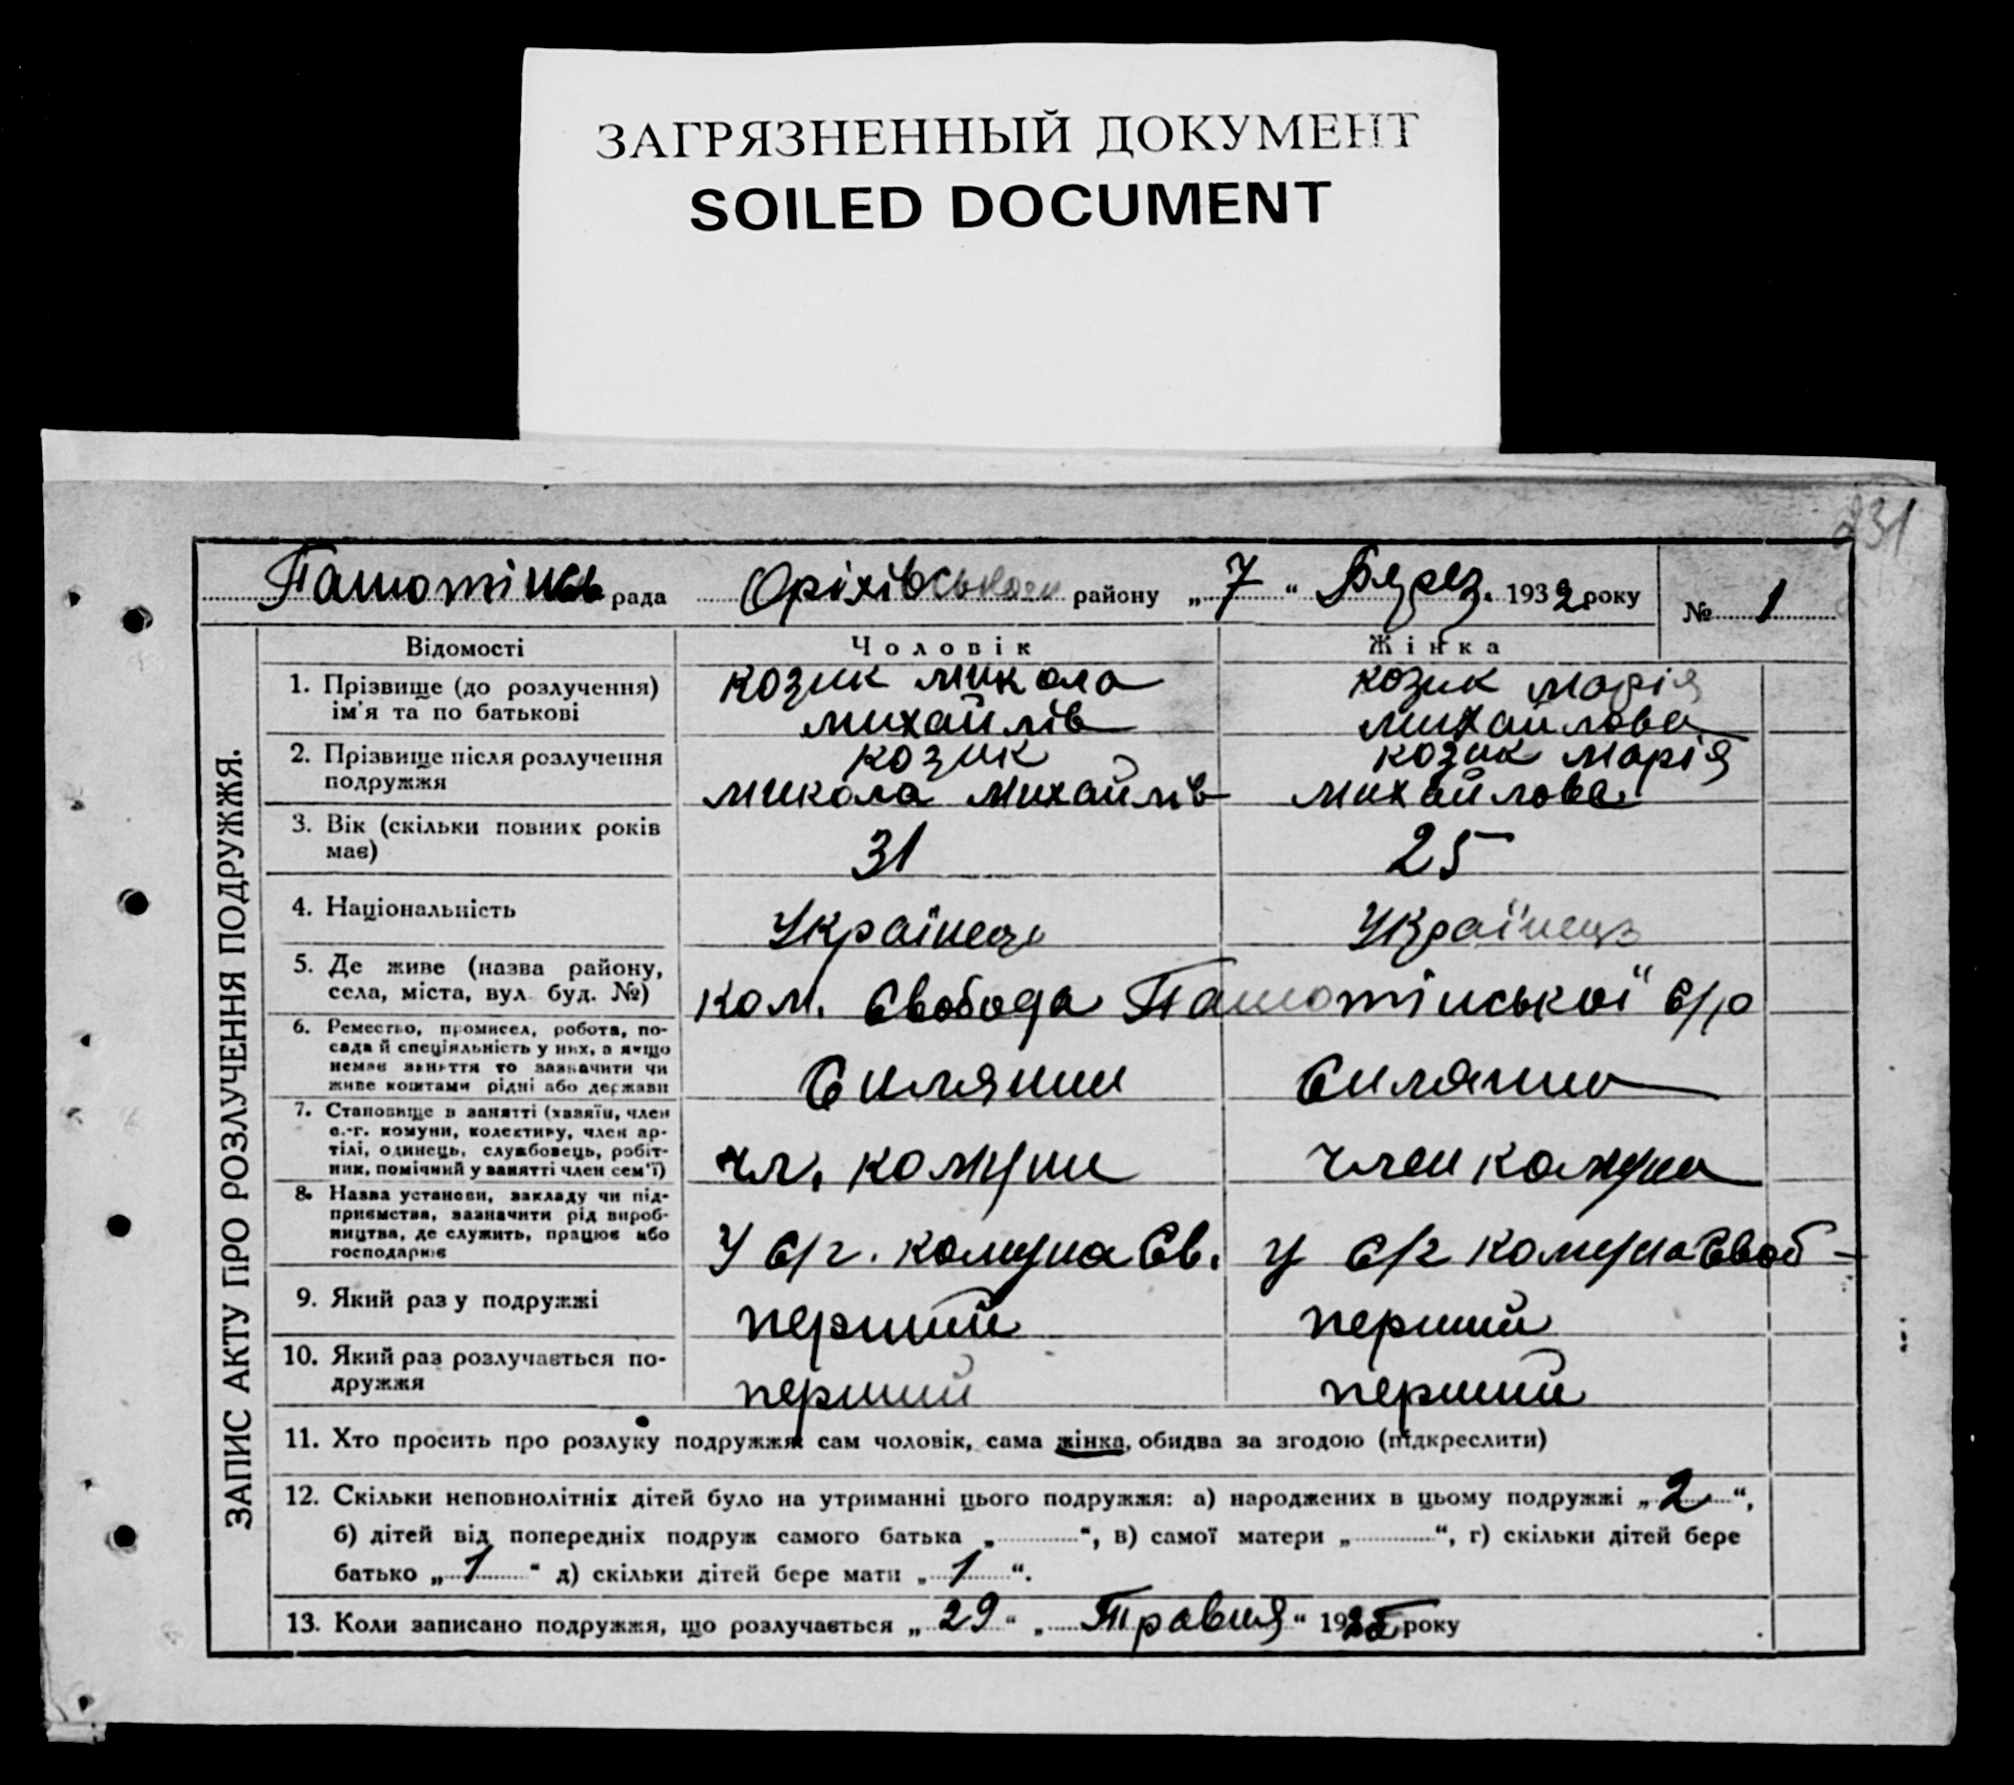 ЗАГРЯЗНЕННЫЙ ДОКУМЕНТ
SOILED DOCUMENT
231
рада Оріхівського району „7“ Берез. 1932 року № 1
ЗАПИС АКТУ ПРО РОЗЛУЧЕННЯ ПОДРУЖЖЯ.
Відомості Чоловік Жінка
1. Прізвище (до розлучення) козик микола козик марія
ім'я та по батькові михайлів михайлова
2. Прізвище після розлучення козик козик марія
подружжя микола михайлів михайлова
3. Вік (скільки повних років
має) 31 25
4. Національність Українець Українець
5. Де живе (назва району,
села, міста, вул. буд. №) ком. Свобода с/р
6. Ремество, промисел, робота, по-
сада й спеціяльність у них, а якщо
немає заняття то зазначити чи Силянин Силянин
живе коштами рідні або держави
7. Становище в занятті (хазяїн, член
с.-г. комуни, колективу, член ар-
тілі, одинець, службовець, робіт- чл. комуни член комуни
ник, помічний у занятті член сем'ї)
8. Назва установи, закладу чи під-
приємства, зазначити рід вироб-
ництва, де служить, працює або У с/г. комуна Св. у с/г комуна Своб
господарює
9. Який раз у подружжі перший перший
10. Який раз розлучається по-
дружжя перший перший
11. Хто просить про розлуку подружжя: сам чоловік, сама жінка, обидва за згодою (підкреслити)
12. Скільки неповнолітніх дітей було на утриманні цього подружжя: а) народжених в цьому подружжі „2“,
б) дітей від попередніх подруж самого батька „ “, в) самої матери „ “, г) скільки дітей бере
батько „1“ д) скільки дітей бере мати „1“.
13. Коли записано подружжя, що розлучається „29“ „Травня“ 1925 року